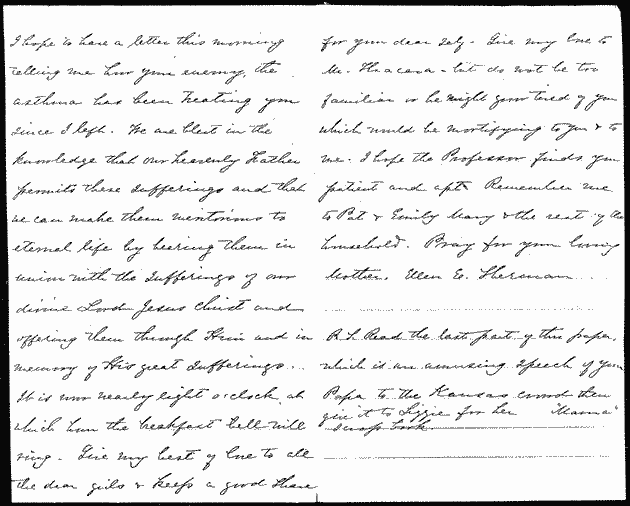 I hope to have a letter this morning
telling me how your enemy, the
asthma has been treating you
since I left. We are blest in the
knowledge that our heavenly Father
permits these sufferings and that
we can make them meritorious to
eternal life by bearing them in
union with the sufferings of our
divine Lord Jesus Christ and
offering them through Him and in
memory of His great sufferings...
It is now nearly eight o'clock, at
which hour the breakfast bell will
ring. Give my best of love to all
the dear girls & keep a good share
for your dear self. Give my love to
Mr. but do not be too
familiar or he might grow tired of you
which would be mortifying to you & to
me. I hope the Professor finds you
patient and apt. Remember me
to Pat & Emily Mary & the rest of the
household. Pray for your loving
Mother. Ellen E. Sherman....
P.S. Read the last part of this paper,
which is an amusing speech of your
Papa to the Kansas crowd then
give it to Lizzie for her "Mamma"
scrap book